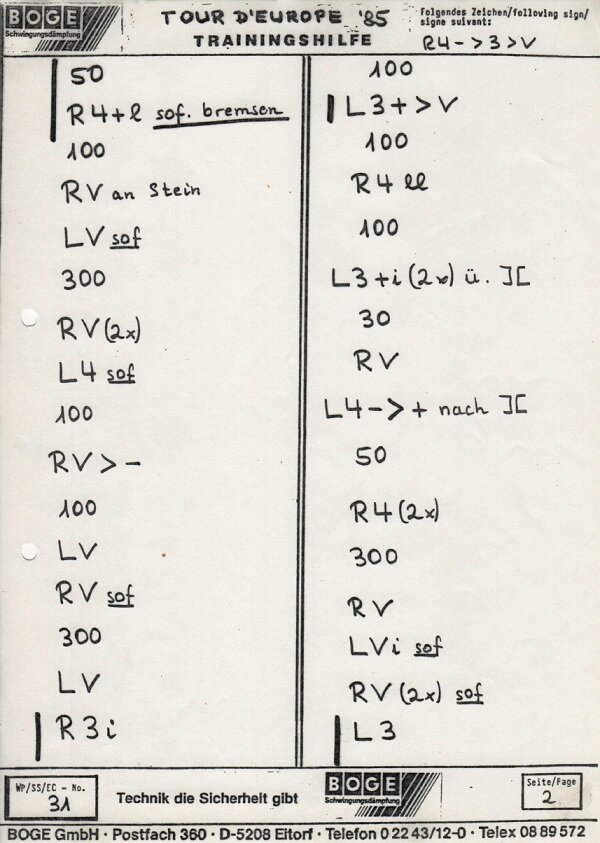 BOGE
Schwingungsdämpfung
TOUR D'EUROPE '85
TRAININGSHILFE
Folgendes Zeichen/following sign/
signe suivant:
R4->3>V
50
R4+l sof. bremsen
100
RV an Stein
LV sof
300
RV(2x)
L4 sof
100
RV>-
100
LV
RV sof
300
LV
R3i
100
L3+>V
100
R4 ll
100
L3+i(2x) ü. ][
30
RV
L4->+ nach ][
50
R4(2x)
300
RV
LVi sof
RV(2x) sof
L3
WP/SS/EC - No.
31
Technik die Sicherheit gibt
BOGE
Schwingungsdämpfung
Seite/Page
2
BOGE GmbH · Postfach 360 · D-5208 Eitorf · Telefon 0 22 43/12-0 · Telex 08 89 572